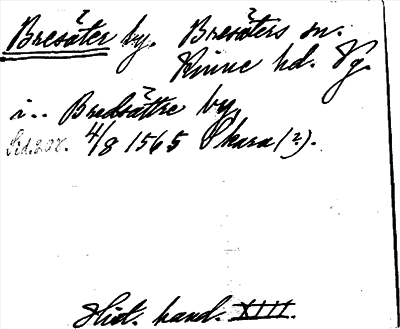 Bresäter by. Bresäters sn.
Kinne hd. Vg.
i.. Bredsättre by
Sid. 208. 4/8 1565 Skara (?).
Hist. hand. XIII.